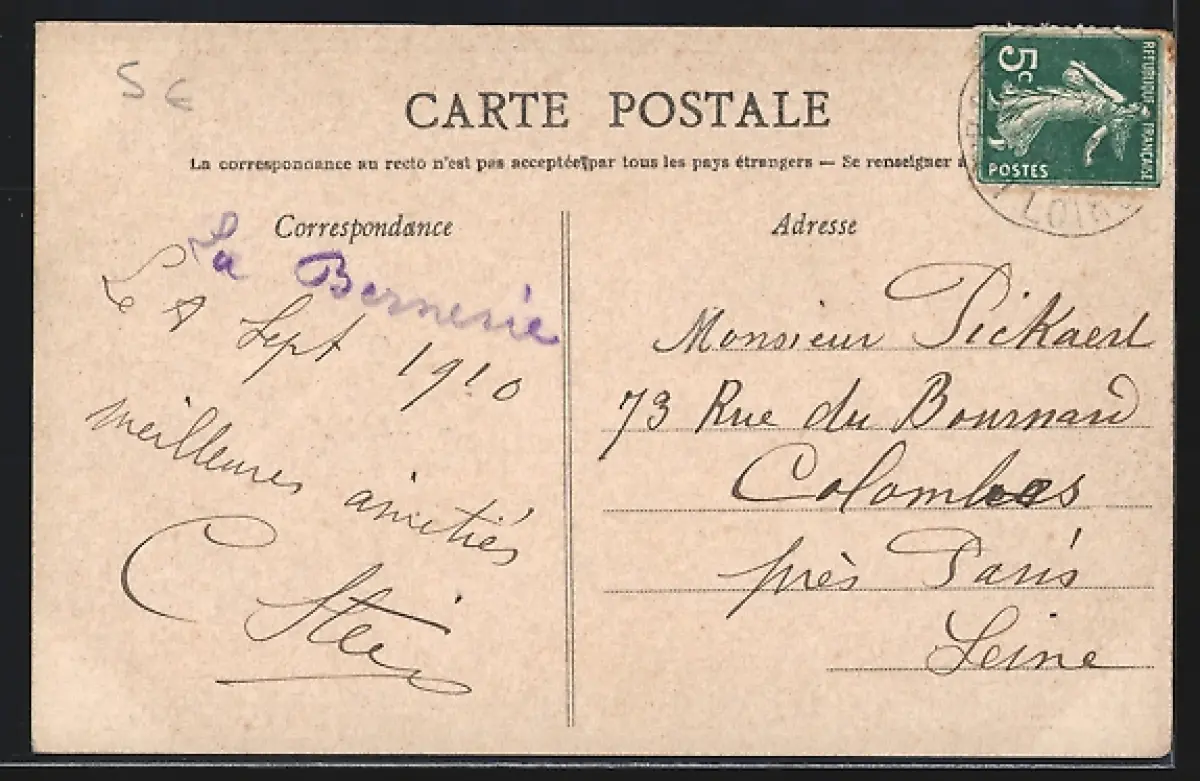 5 €
CARTE POSTALE
La correspondance au recto n'est pas acceptée par tous les pays étrangers — Se renseigner à
5c
REPUBLIQUE FRANÇAISE
POSTES
LOIRE
Correspondance
La Bernerie
Le Sept 1910
meilleures amitiés
C
Adresse
Monsieur Pickaert
73 Rue du Bournard
Colombes
près Paris
Seine